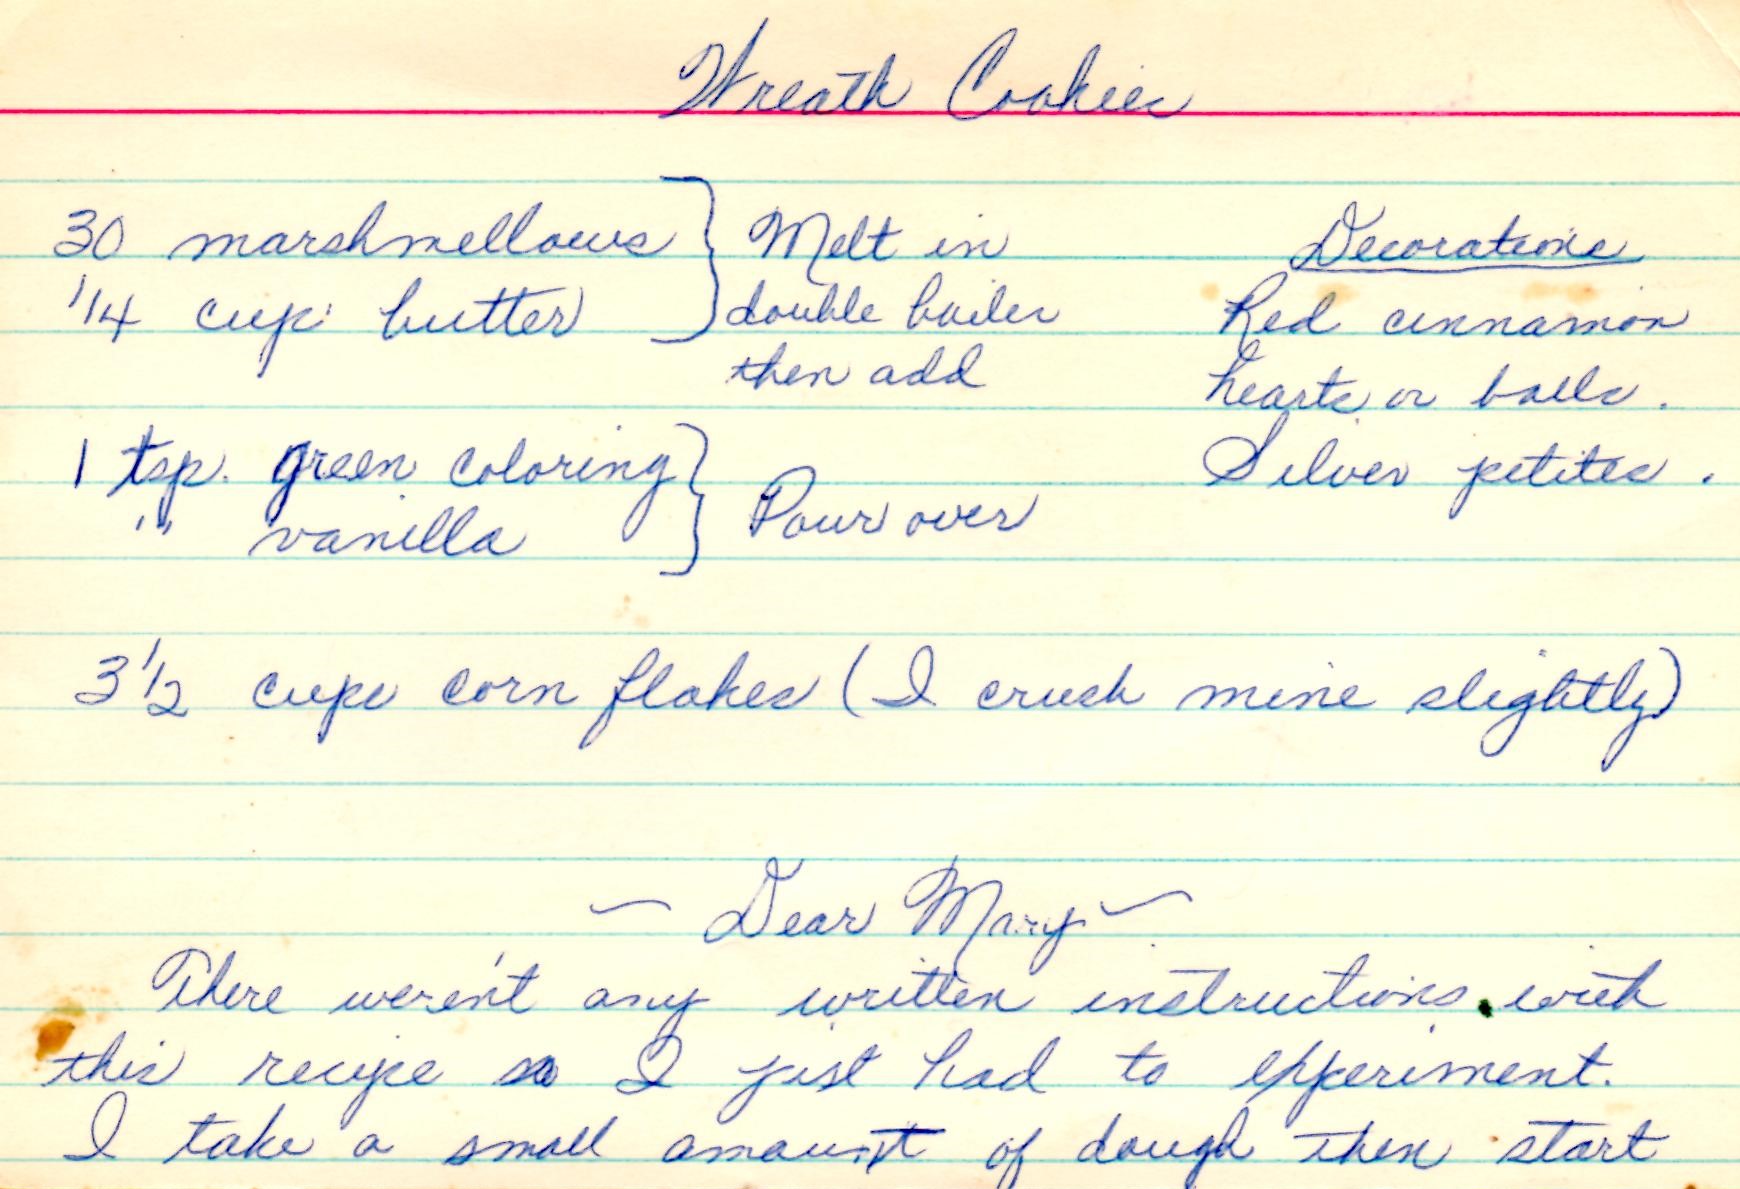 Wreath Cookies
30 marshmellows
1/4 cup butter
Melt in
double boiler
then add
1 tsp. green coloring
" vanilla
Pour over
3 1/2 cups corn flakes (I crush mine slightly)
Decorations
Red cinnamon
hearts or balls.
Silver petites.
~ Dear Mary ~
There weren't any written instructions with
this recipe so I just had to experiment.
I take a small amount of dough then start